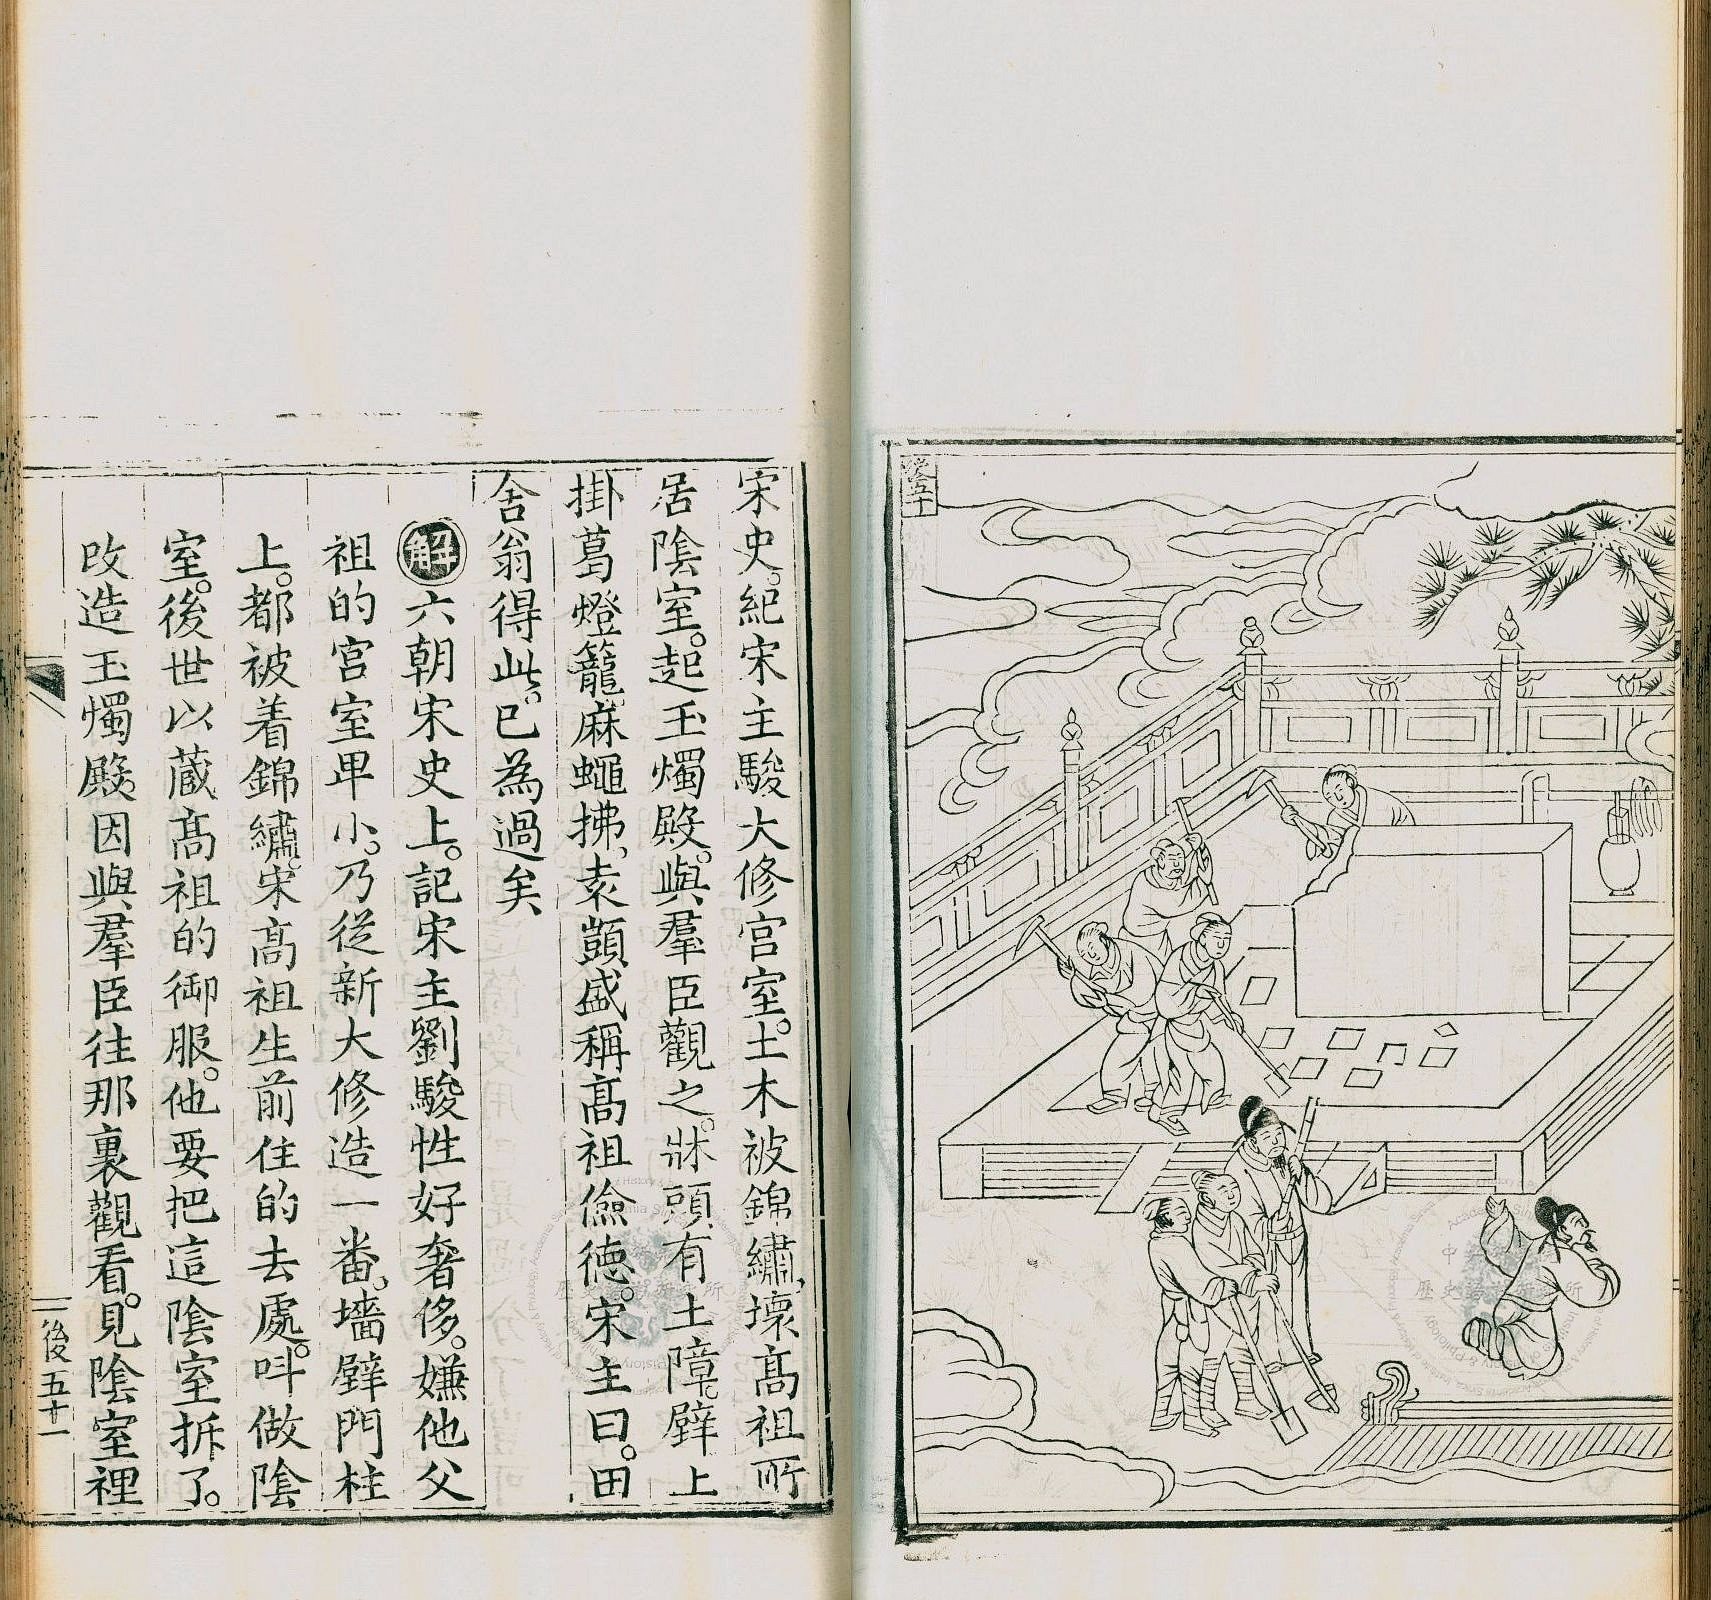 後五十
宋史。紀宋主駿大修宮室。土木被錦繡、壞高祖所
居陰室。起玉燭殿。與羣臣觀之。牀頭有土障。壁上
掛葛燈籠、麻蠅拂、袁顗盛稱高祖儉德。宋主曰。田
舍翁得此。已為過矣
解六朝宋史上。記宋主劉駿性好奢侈。嫌他父
祖的宮室卑小。乃從新大修造一番。墻壁門柱
上。都被着錦繡。宋高祖生前住的去處。叫做陰
室。後世以藏高祖的御服。他要把這陰室拆了。
改造玉燭殿。因與羣臣往那裏觀看。見陰室裡
後五十一